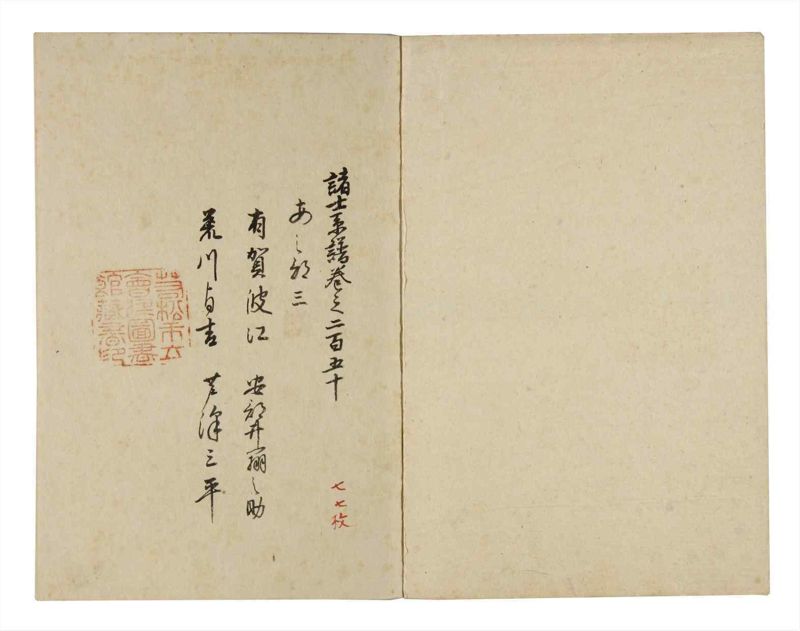 諸士系譜巻之二百五十
七七枚
あ之部三
有賀波江 安部井之助
荒川吉 芦澤三平
若松市立
會津圖書
館藏書印